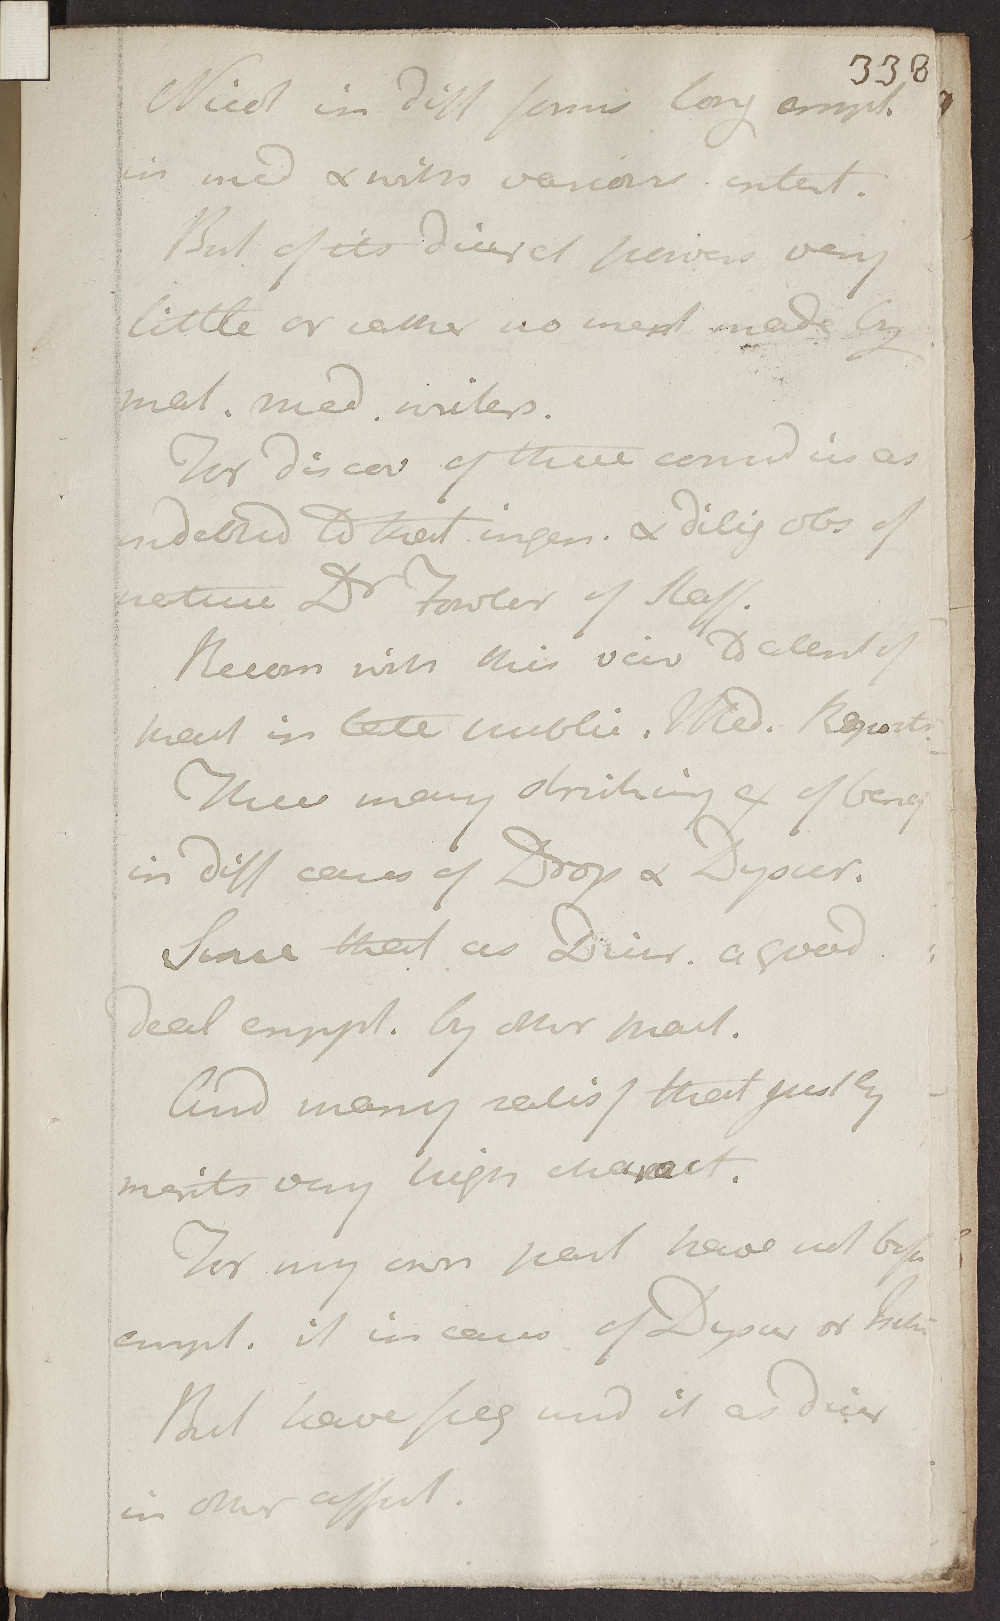 338
Nicot in diff forms long empl.
in med & with various intent.
But of its diuret powers very
little or rather no ment made by
mat. med. writers.
For discov of these consid us as
indebted to that ingen. & dilig obs of
nature Dr Fowler of Staff.
Recom with this view to attent of
pract in late public. Med. Reports
There many striking ex of benef
in diff cases of Drop & Dysur.
Since that as Diur. a good
deal empl. by other pract.
And many satisf that justly
merits very high charact.
For my own part have not
empl. it in cases of Dysur or Ischu
But have freq und it as diur
in other affect.